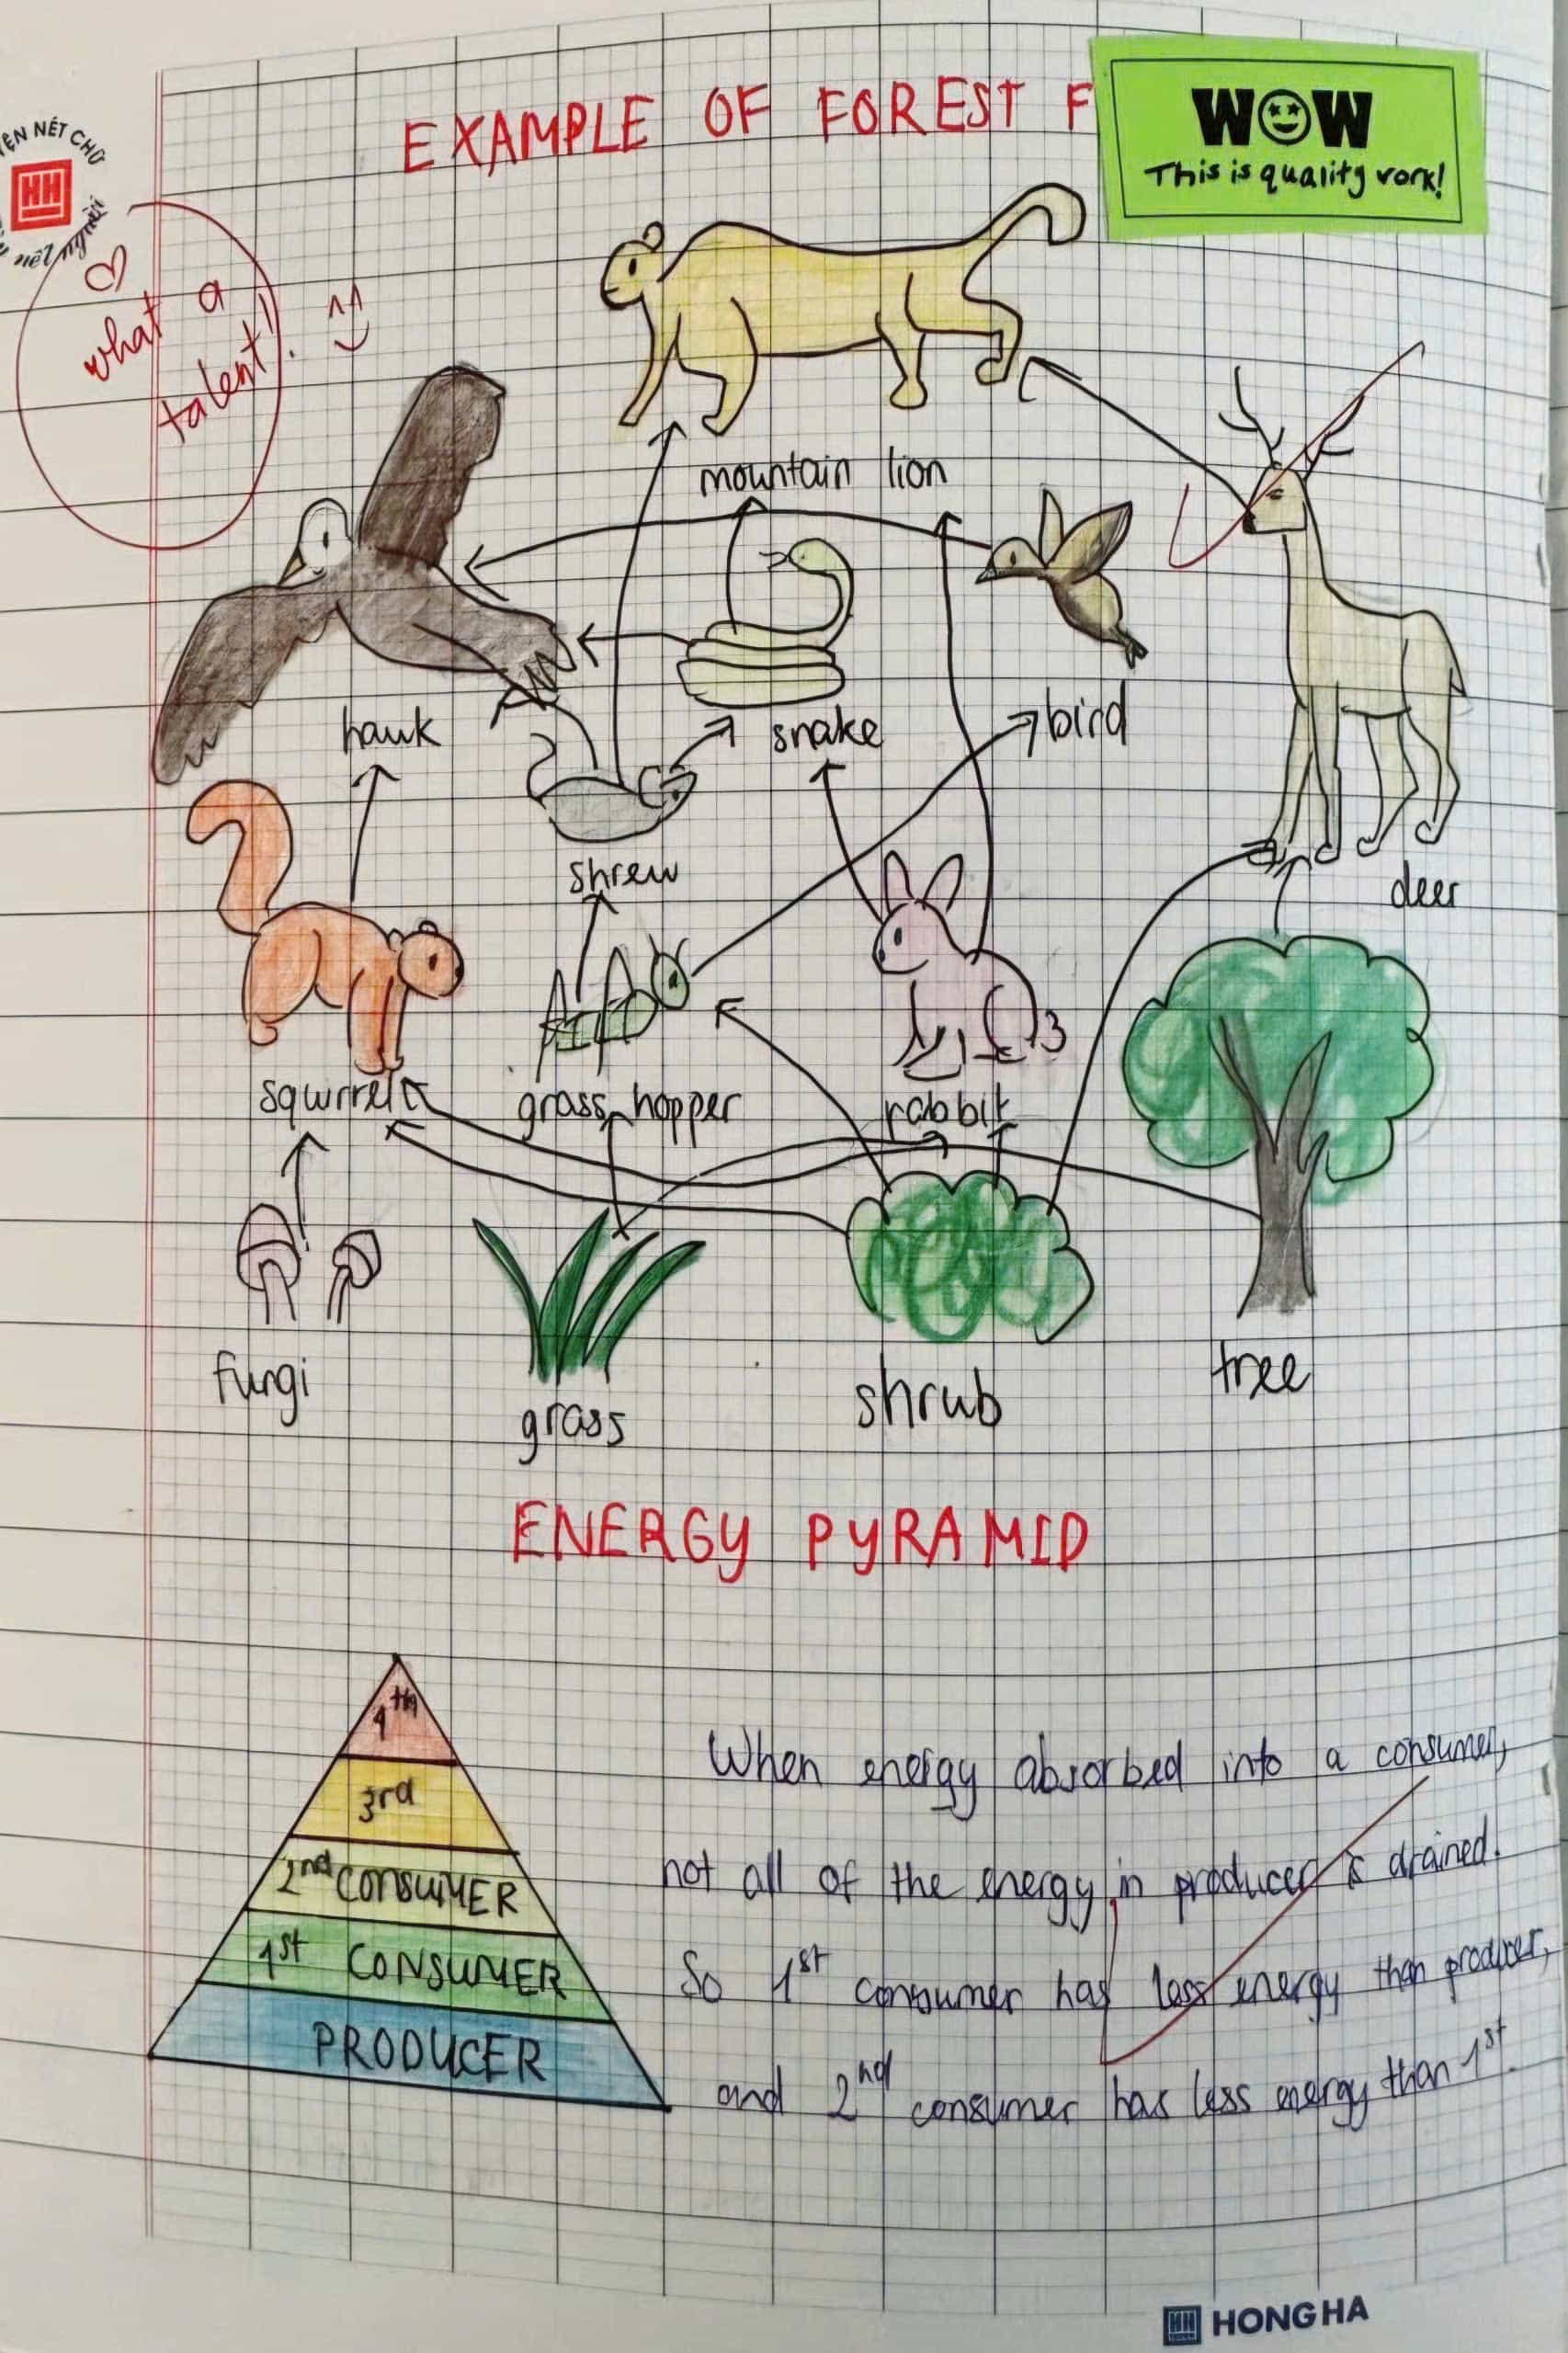 EXAMPLE OF FOREST F
WOW
This is quality work!
HH
what a
talent!
mountain lion
hawk
snake
bird
shrew
deer
squirrel
grass hopper
rabbit
fungi
grass
shrub
tree
ENERGY PYRAMID
4th
3rd
2nd CONSUMER
1st CONSUMER
PRODUCER
When energy absorbed into a consumer,
not all of the energy in producer is drained.
So 1st consumer has less energy than producer,
and 2nd consumer has less energy than 1st.
HH HONG HA